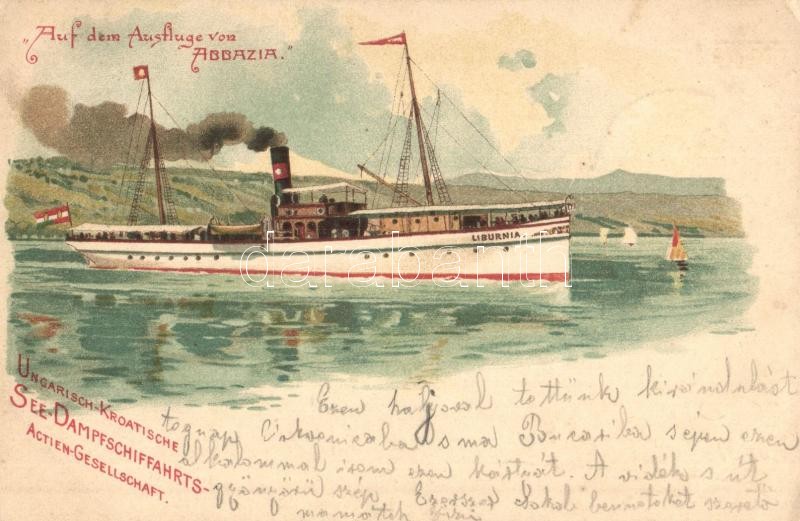 "Auf dem Ausfluge von
ABBAZIA."
LIBURNIA
darabanth
UNGARISCH-KROATISCHE
SEE-DAMPFSCHIFFAHRTS-
ACTIEN-GESELLSCHAFT.
Ezen hajóval tettünk kirándulást
tegnap Cirkvenicaba s ma Buccariba s épen ezen
alkalommal irom ezen kártyát. A vidék s út
gyönyörű szép Ezerszer csókol benneteket szerető
mamátok